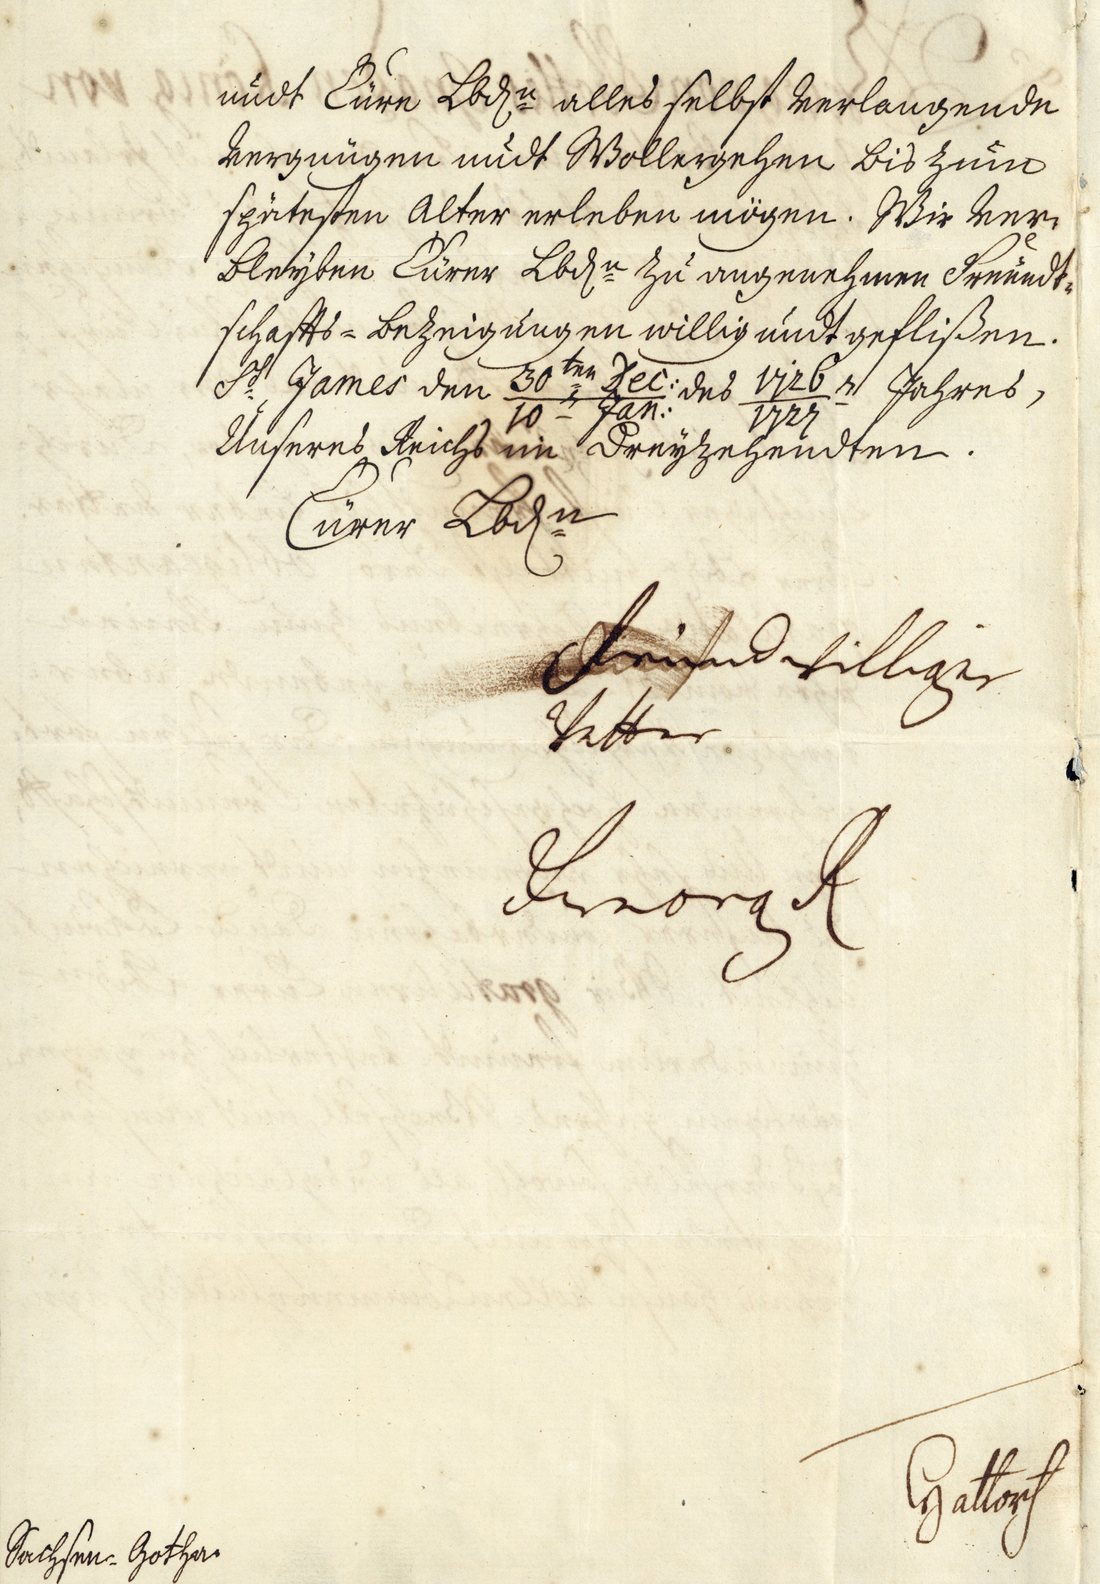 undt Eüre Lbdn alles selbst verlangende
vergnügen undt Wollergehen bis zum
spätesten Alter erleben mögen. Wir ver-
bleyben Eürer Lbdn zu angenehmen Freündt-
schaffts-bezeigungen willig undt geflißen.
St. James den 30ten Dec: des 1726 Jahres,
10 Jan: 1727
Unseres Reichs im Dreyzehendten.
Eürer Lbdn
Freundwilliger
Vetter
Georg R
Hattorf
Sachsen-Gotha.